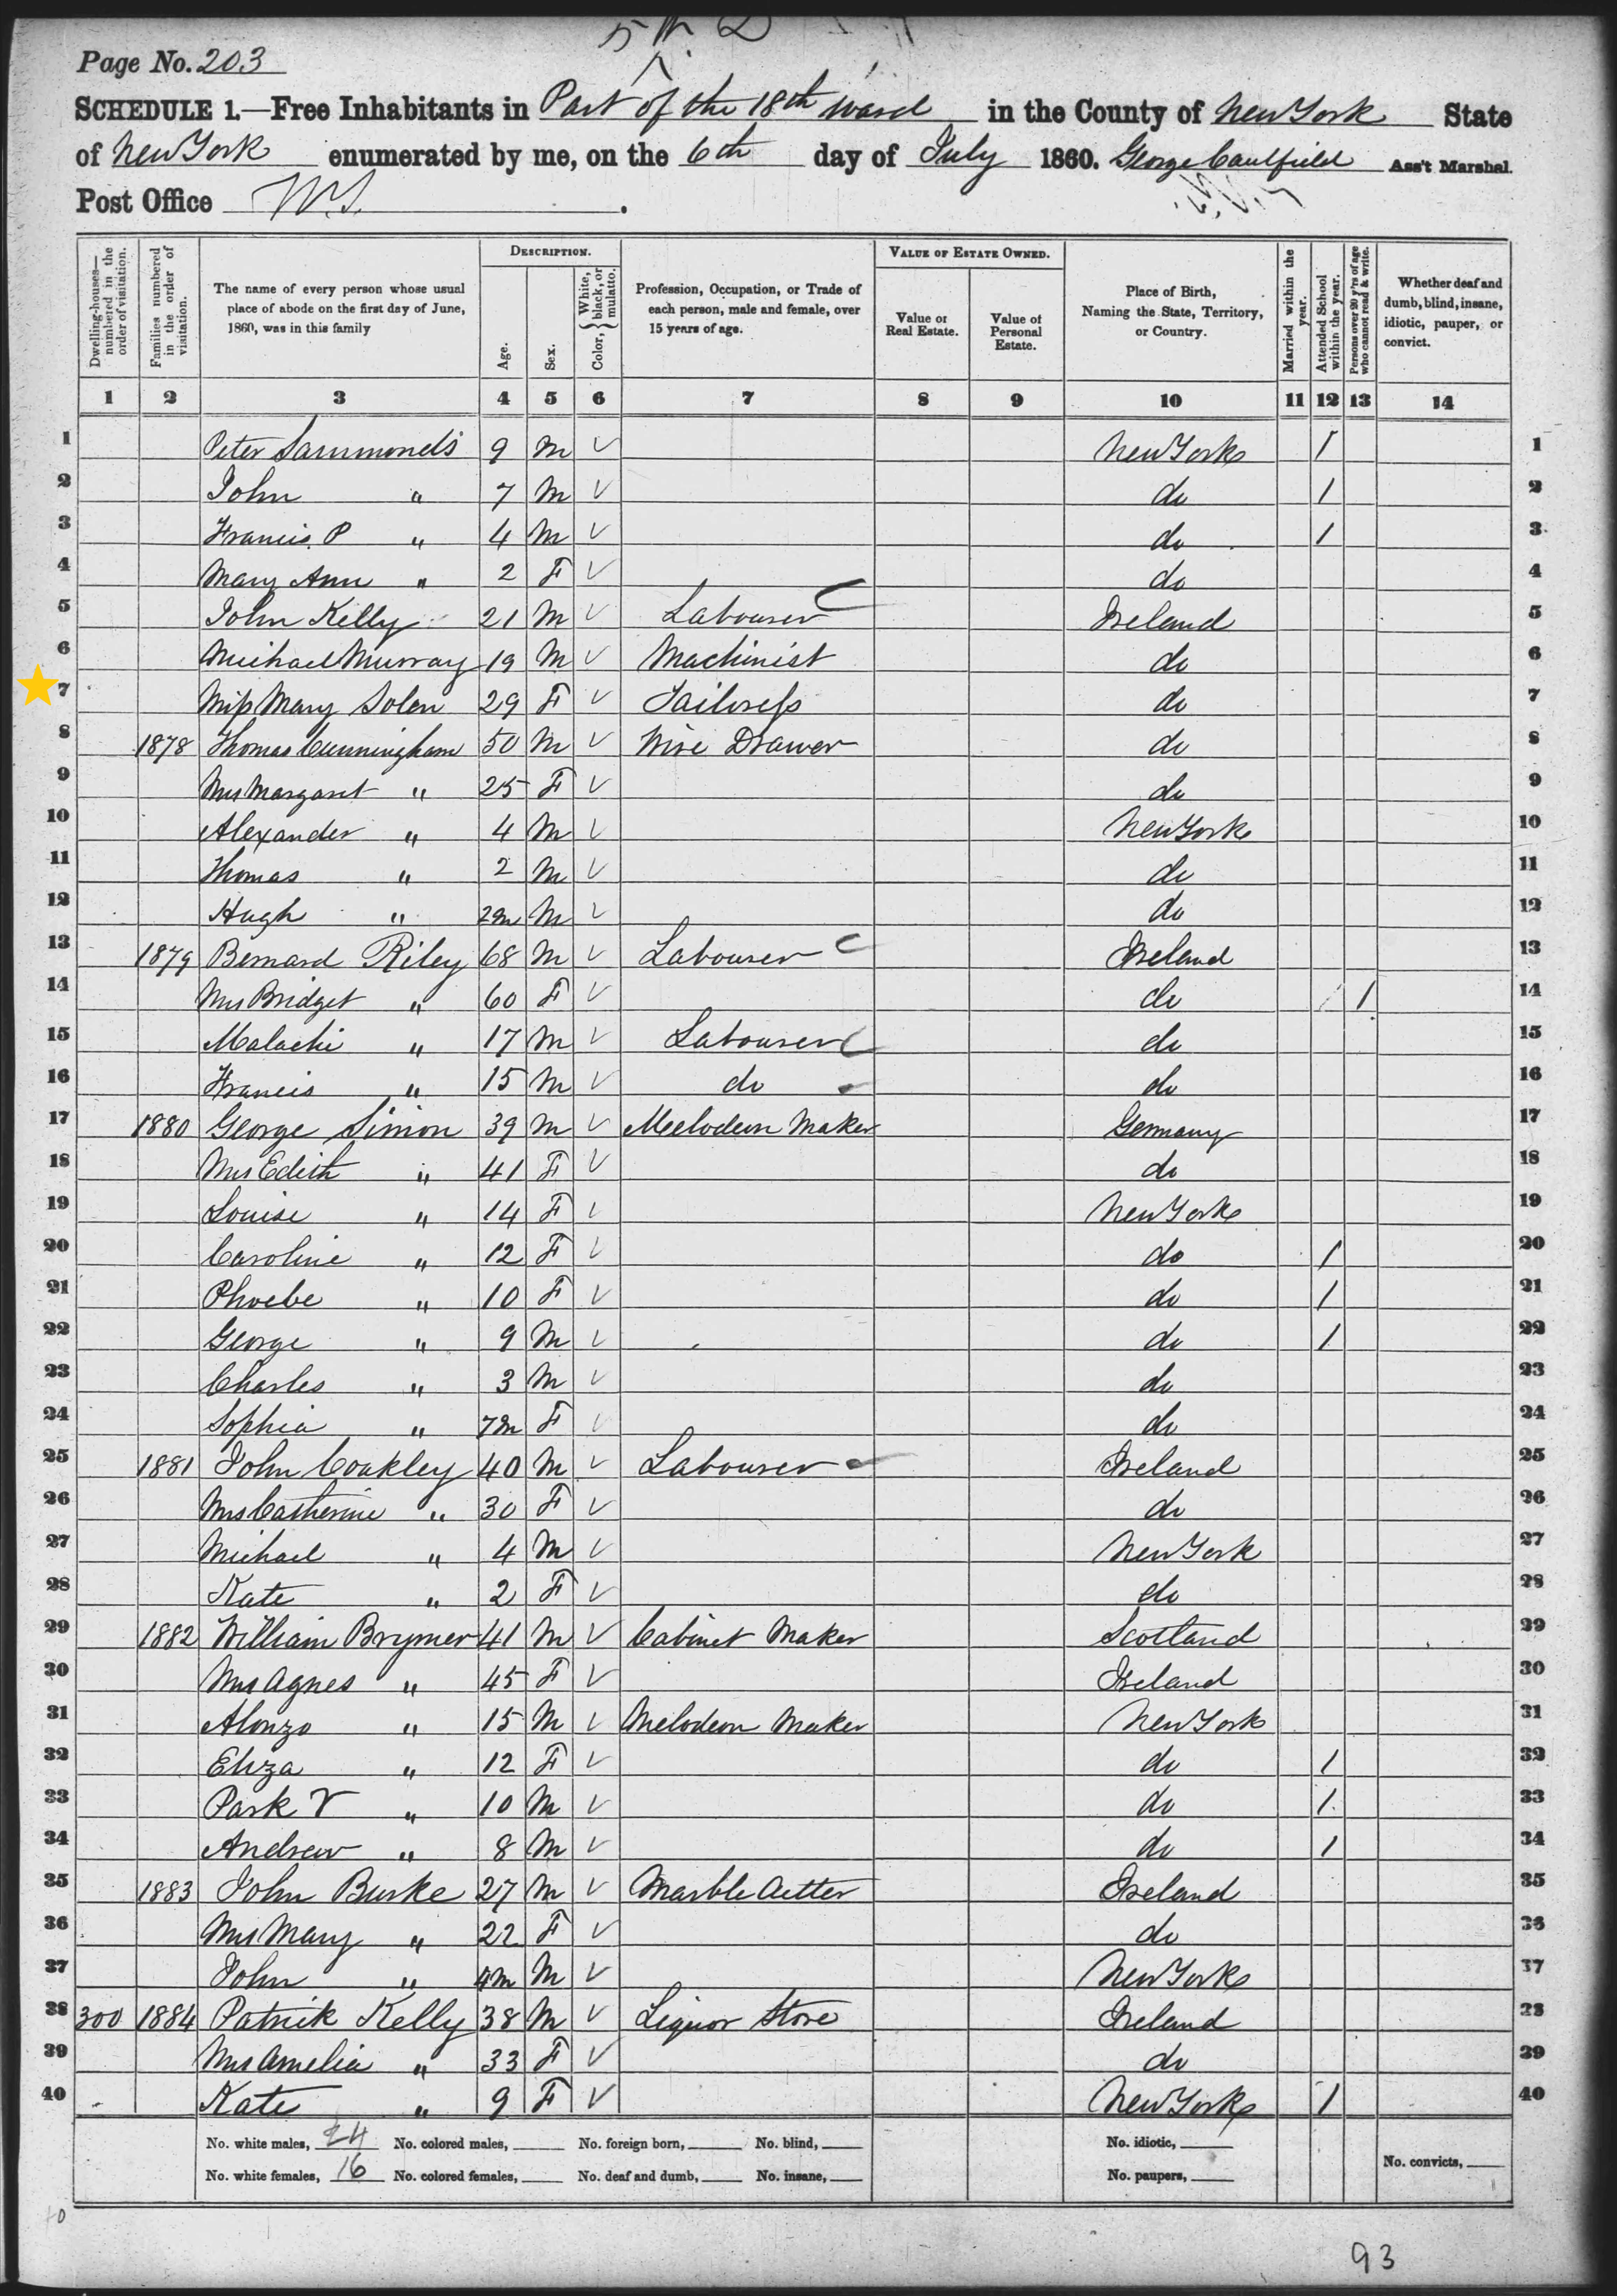 5 W. D
Page No. 203
SCHEDULE 1.—Free Inhabitants in Part of the 18th ward in the County of New York State
of New York enumerated by me, on the 6th day of July 1860. George Caulfield Ass't Marshal.
Post Office
Dwelling-houses—numbered in the order of visitation. Families numbered in the order of visitation. The name of every person whose usual place of abode on the first day of June, 1860, was in this family DESCRIPTION. Age. Sex. Color, { White, black, or mulatto. Profession, Occupation, or Trade of each person, male and female, over 15 years of age. VALUE OF ESTATE OWNED. Value of Real Estate. Value of Personal Estate. Place of Birth, Naming the State, Territory, or Country. Married within the year. Attended School within the year. Persons over 20 y'rs of age who cannot read & write. Whether deaf and dumb, blind, insane, idiotic, pauper, or convict.
1 2 3 4 5 6 7 8 9 10 11 12 13 14
1 Peter Sammonds 9 m ✓ New York 1 1
2 John " 7 m ✓ do 1 2
3 Francis P " 4 m ✓ do 1 3
4 Mary Ann " 2 F ✓ do 4
5 John Kelly 21 m ✓ Labourer Ireland 5
6 Michael Murray 19 m ✓ Machinist do 6
7 Miss Mary Solen 29 F ✓ Tailoress do 7
8 1878 Thomas Cunningham 50 m ✓ Wire Drawer do 8
9 Mrs Margaret " 25 F ✓ do 9
10 Alexander " 4 m ✓ New York 10
11 Thomas " 2 m ✓ do 11
12 Hugh " 2m m ✓ do 12
13 1879 Bernard Riley 68 m ✓ Labourer Ireland 13
14 Mrs Bridget " 60 F ✓ do 1 14
15 Malachi " 17 m ✓ Labourer do 15
16 Francis " 15 m ✓ do do 16
17 1880 George Simon 39 m ✓ Meelodeon Maker Germany 17
18 Mrs Edith " 41 F ✓ do 18
19 Louise " 14 F ✓ New York 19
20 Caroline " 12 F ✓ do 1 20
21 Phoebe " 10 F ✓ do 1 21
22 George " 9 m ✓ do 1 22
23 Charles " 3 m ✓ do 23
24 Sophia " 7m F ✓ do 24
25 1881 John Coakley 40 m ✓ Labourer Ireland 25
26 Mrs Catherine " 30 F ✓ do 26
27 Michael " 4 m ✓ New York 27
28 Kate " 2 F ✓ do 28
29 1882 William Brymer 41 m ✓ Cabinet Maker Scotland 29
30 Mrs Agnes " 45 F ✓ Ireland 30
31 Alonzo " 15 m ✓ Melodeon Maker New York 31
32 Eliza " 12 F ✓ do 1 32
33 Park V " 10 m ✓ do 1 33
34 Andrew " 8 m ✓ do 1 34
35 1883 John Burke 27 m ✓ Marble Cutter Ireland 35
36 Mrs Mary " 22 F ✓ do 36
37 John " 4m m ✓ New York 37
38 300 1884 Patrick Kelly 38 m ✓ Liquor Store Ireland 38
39 Mrs Amelia " 33 F ✓ do 39
40 Kate " 9 F ✓ New York 1 40
No. white males, 24 No. colored males, No. foreign born, No. blind, No. idiotic,
No. white females, 16 No. colored females, No. deaf and dumb, No. insane, No. paupers, No. convicts,
93